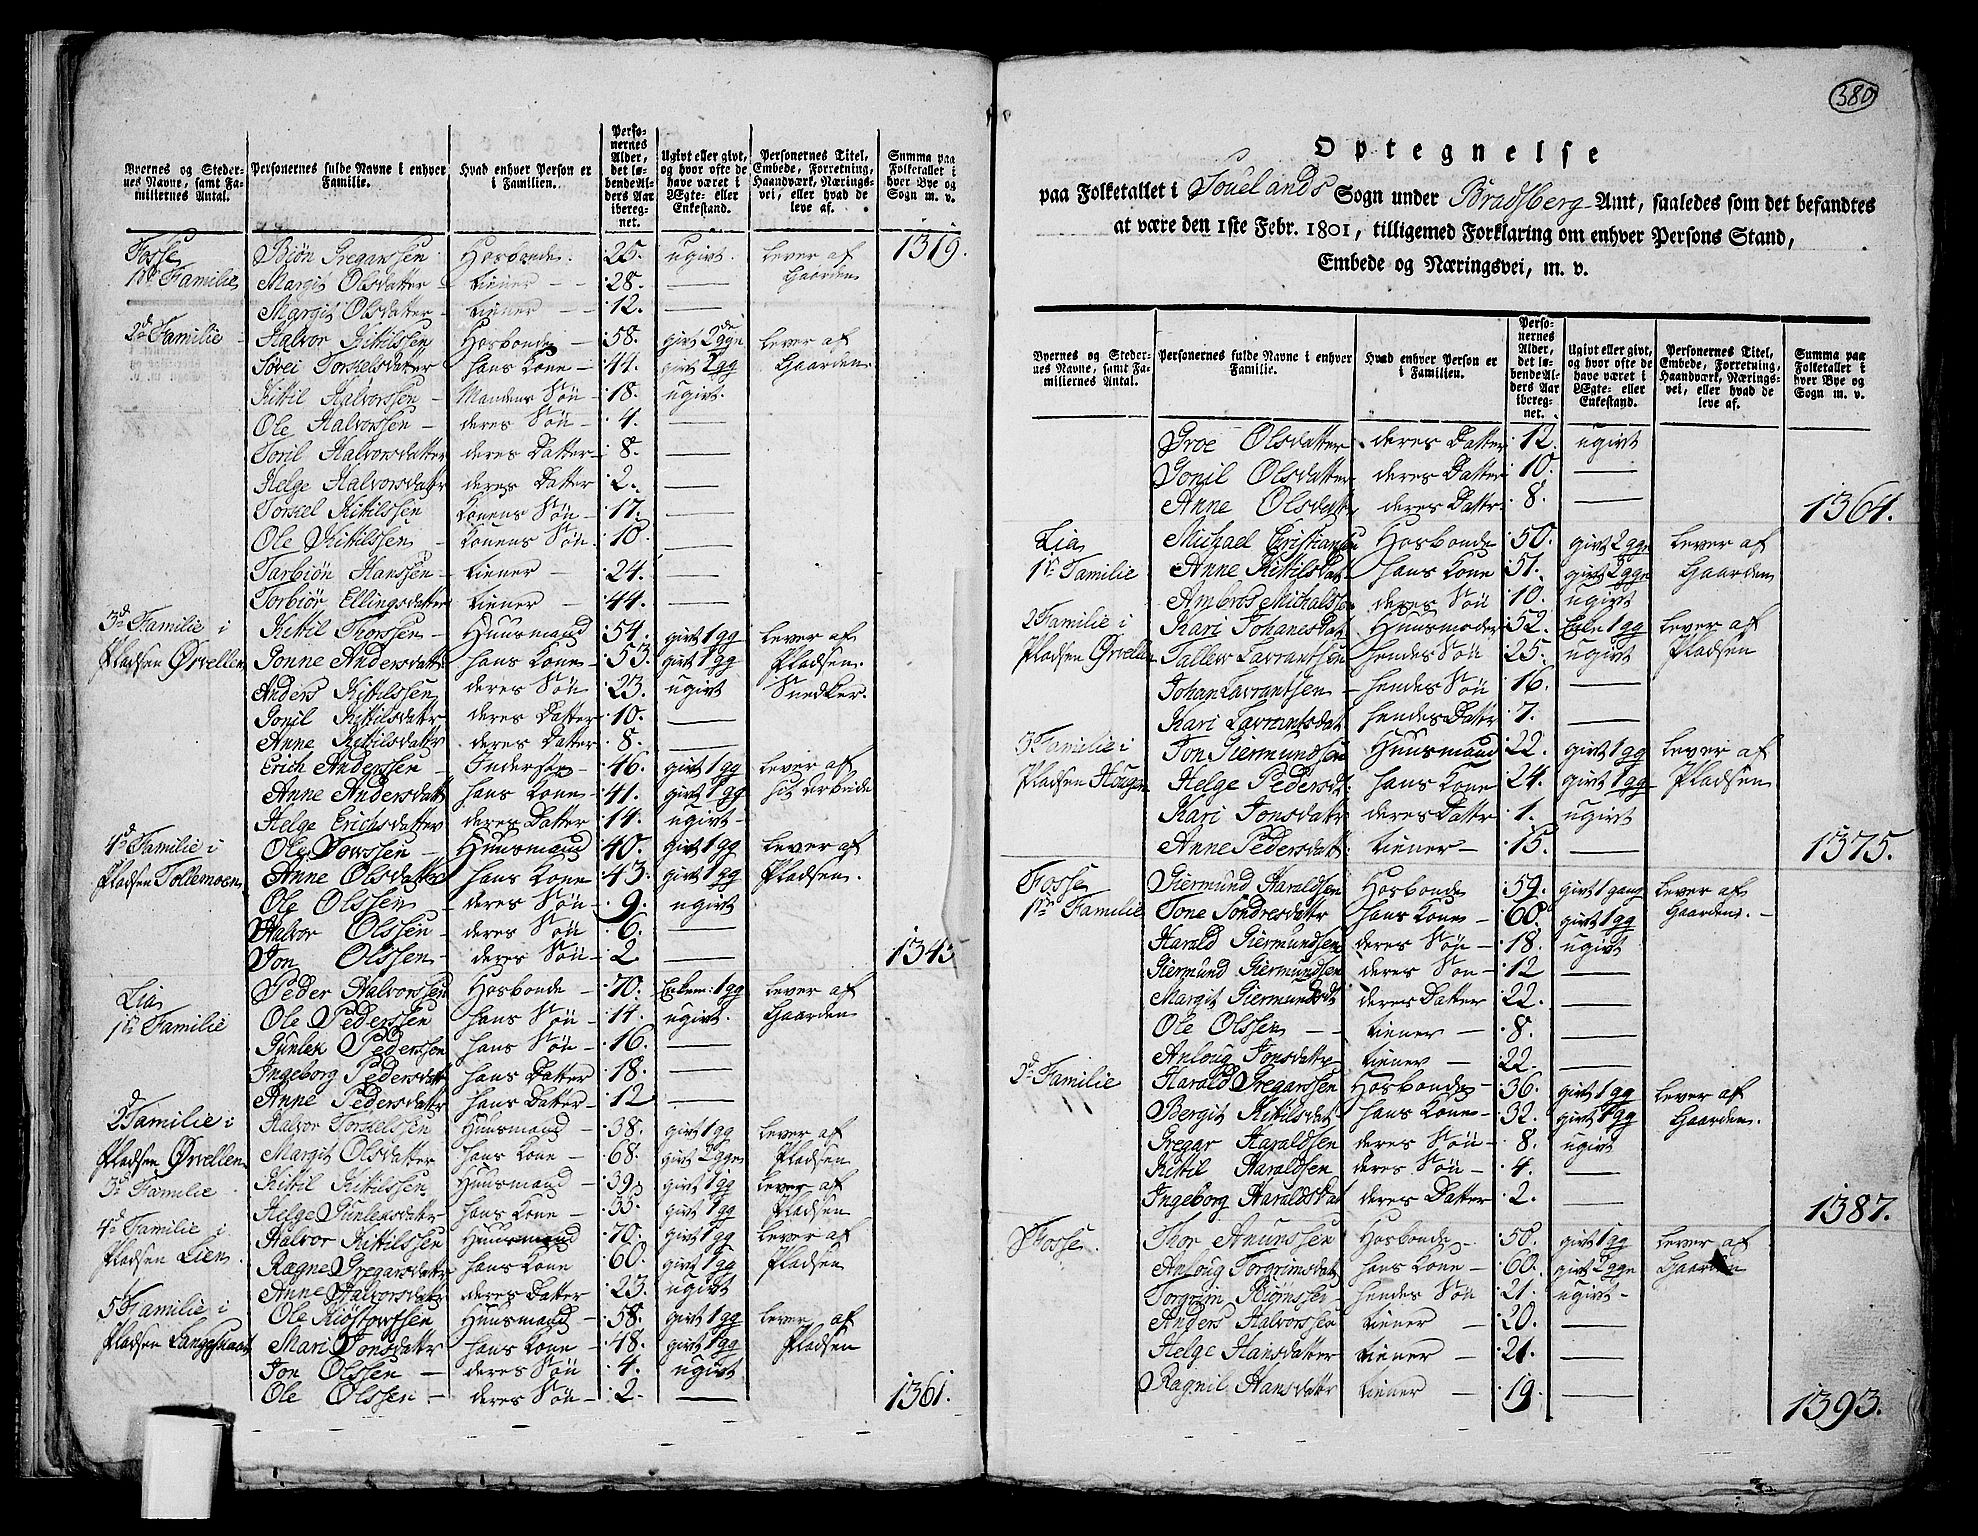 Byernes og Stedernes Navne, samt Familiernes Antal. | Personernes fulde Navne i enhver Familie. | Hvad enhver Person er i Familien. | Personernes Alder, det løbende Alders Aar iberegnet. | Ugivt eller givt, og hvor ofte de have været i Ægte- eller Enkestand. | Personernes Titel, Embede, Forretning, Haandværk, Næringsvei, eller hvad de leve af. | Summa paa Folketallet i hver Bye og Sogn m. v.
Fosse | Biøn Greganssen | Hosbonde | 25. | ugivt. | lever af | 1319.
1te Familie | Margit Olsdatter | tiener | 28. | — | Gaarden
Margit Olsdatter | tiener | 12. | —
2d Familie | Halvor Kittilssen | Hosbonde | 58. | givt 2de ggr | lever af
Sovei Torkelsdatter | hans Kone | 44. | givt 2 gg | Gaarden
Kittil Halvorssen | Mandens Søn | 18. | ugivt.
Ole Halvorssen | deres Søn | 4. | —
Toril Halvorsdatter | deres Datter | 8. | —
Helge Halvorsdattr | deres Datter | 2. | —
Torkel Kittilssen | Konens Søn | 17. | —
Ole Kittilssen | Konens Søn | 10. | —
Tarbiøn Hanssen | tiener | 24. | —
Torbiør Ellingsdatter | tiener | 44. | —
3d Familie i | Kittil Thorssen | Huusmand | 54. | givt 1 gg | lever af
Pladsen Ørvellen | Gonne Andersdattr | hans Kone | 53. | givt 1 gg | Pladsen.
Anders Kittilssen | deres Søn | 23. | ugivt | Snedker.
Gonil Kittilsdattr | deres Datter | 10. | —
Anne Kittilsdattr | deres Datter | 8. | —
Erich Anderssen | Inderst | 46. | givt 1 gg | lever af
Anne Andersdattr | hans Kone | 41. | givt 1 gg | sit arbeide
Helge Erichsdatter | deres Datter | 14. | ugivt
4d Familie i | Ole Towssen | Huusmand | 40. | givt 1 gg | lever af
Pladsen Tollemoen | Anne Olsdatter | hans Kone | 43. | givt 1 gg | Pladsen.
Ole Olssen | deres Søn | 9. | ugivt
Halvor Olssen | deres Søn | 6. | —
Jon Olssen | deres Søn | 2 | — | 1345
Lia | Peder Halvorssen | Hosbonde | 70. | Enkem: 1 gg | lever af
1te Familie | Ole Pederssen | hans Søn | 14. | ugivt. | Gaarden
Gunlek Pederssen | hans Søn | 16. | —
Ingeborg Pedersdattr | hans Datter | 18. | —
Anne Pedersdattr | hans Datter | 12 | —
2d Familie i | Halvor Torkelssen | Huusmand | 38. | givt 1 gg | lever af
Pladsen Ørvellen | Margit Olsdatter | hans Kone | 68. | givt 2 ggr | Pladsen
3d Familie | Kittil Kittilssen | Huusmand | 39. | givt 1 gg | lever af
Helge Gunleksdattr | hans Kone | 35. | givt 1 gg | Pladsen
4d Familie i | Halvor Kittilssen | Huusmand | 70. | givt 1 gg | lever af
Pladsen Lien. | Ragne Gregarsdattr | hans Kone | 60. | givt 1 gg | Pladsen
Anne Halvorsdattr | deres Datter | 23. | ugivt
5 Familie i | Ole Kiøstowssen | Huusmand | 58. | givt 1 gg | lever af
Pladsen | Mari Jonsdattr | hans Kone | 48. | givt 1 gg | Pladsen
Jon Olssen | deres Søn | 4. | ugivt
Ole Olssen | deres Søn | 2. | — | 1361.
380
Optegnelse
paa Folketallet i Souelands Sogn under Bradsberg Amt, saaledes som det befandtes
at være den 1ste Febr. 1801, tilligemed Forklaring om enhver Persons Stand,
Embede og Næringsvei, m. v.
Byernes og Stedernes Navne, samt Familiernes Antal. | Personernes fulde Navne i enhver Familie. | Hvad enhver Person er i Familien. | Personernes Alder, det løbende Alders Aar iberegnet. | Ugivt eller givt, og hvor ofte de have været i Ægte- eller Enkestand. | Personernes Titel, Embede, Forretning, Haandværk, Næringsvei, eller hvad de leve af. | Summa paa Folketallet i hver Bye og Sogn m. v.
Groe Olsdatter | deres Datter | 12. | ugivt
Gonil Olsdatter | deres Datter | 10. | —
Anne Olsdattr | deres Dattr | 8. | — | 1364.
Lia | Michael Christianssen | Hosbonde | 50. | givt 2 ggr | lever af
1te Familie | Anne Kittilsdat | hans Kone | 51. | givt 2 ggr | Gaarden
Ambros Michalssen | deres Søn | 10. | ugivt
2 Familie i | Kari Johanesdat | Huusmoder | 52. | Enke 1 gg | lever af
Pladsen Ørvellen | Tallew Lavrantsen | hendes Søn | 25. | ugivt | Pladsen
Johan Lavrantsen | hendes Søn | 16. | —
Kari Lavrantsdat | hendes Dattr | 7. | —
3 Familie i | Jon Giermundsen | Huusmand | 22. | givt 1 gg | lever af
Pladsen Hougen | Helge Pedersdt. | hans Kone | 24. | givt 1 gg | Pladsen
Kari Jonsdattr | deres Dattr | 1. | ugivt
Anne Pedersdatt | tiener | 15. | — | 1375.
Fosse | Giermund Haraldsen | Hosbonde | 59. | givt 1 gang | lever af
1te Familie | Tone Sondresdattr | hans Kone | 60. | givt 1 gg | Gaarden.
Harald Giermundsen | deres Søn | 18. | ugivt
Giermund Giermundsen | deres Søn | 12 | —
Margit Giermundsdt | deres Datter | 22. | —
Ole Olssen | tiener | 8. | —
Anloug Jonsdattr | tiener | 22. | —
2d Familie | Harald Gregarssen | Hosbonde | 36. | givt 1 gg | lever af
Bergit Kittilsdat | hans Kone | 32. | givt 1 gg | Gaarden.
Gregar Haraldsen | deres Søn | 8. | ugivt
Kittil Haraldsen | deres Søn | 4. | —
Ingeborg Haraldsdat | deres Datter | 2. | — | 1387.
Fosse. | Thor Anunssen | Hosbonde | 50. | givt 1 gg | lever af
Anloug Torgrimsdat | hans Kone | 60. | givt 2 ggr | Gaarden
Torgrim Biørnssen | hendes Søn | 21. | ugivt
Anders Halvorssen | tiener | 20. | —
Helge Hansdatter | tiener | 21. | —
Ragnil Hansdattr | tiener | 19. | — | 1393.